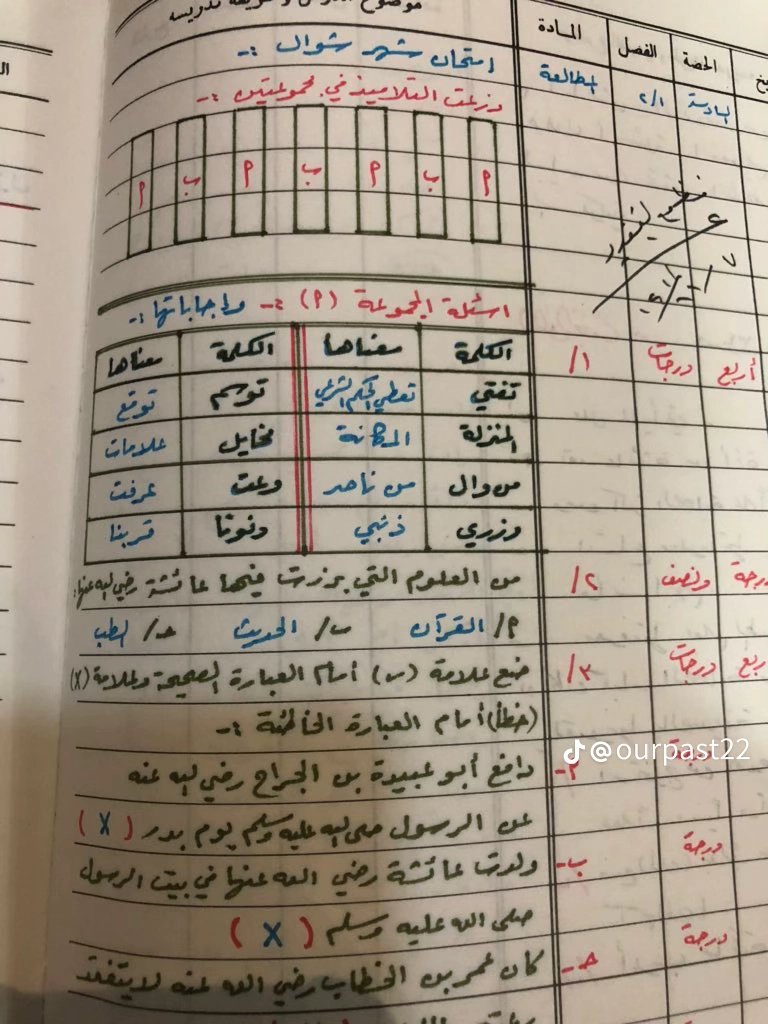 موضوع الدرس وطريقة تدريسه
المادة الفصل الحصة
المطالعة ٢/١ السادسة
امتحان شهر شوال :-
وزعت التلاميذ في مجموعتين :-
أ ب أ ب أ ب أ
اسئلة المجموعة (أ) :- واجاباتها :-
أربع درجات ١/
الكلمة معناها الكلمة معناها
تفتي تعطي الحكم الشرعي توسم توقع
المنزلة المكانة مخايل علامات
من وال من ناصر وعت عرفت
وزري ذنبي ودنونا قربنا
درجة ونصف ٢/ من العلوم التي برزت فيها عائشة رضي الله عنها:
أ/ القرآن ب/ الحديث حـ/ الطب
أربع درجات ٣/ ضع علامة (س) أمام العبارة الصحيحة وعلامة (X)
(خطأ) أمام العبارة الخاطئة :-
درجة أ- دافع أبو عبيدة بن الجراح رضي الله عنه
عن الرسول صلى الله عليه وسلم يوم بدر (X)
درجة ب- ولدت عائشة رضي الله عنها في بيت الرسول
صلى الله عليه وسلم (X)
درجة حـ- كان عمر بن الخطاب رضي الله عنه لا يتفقد
@ourpast22